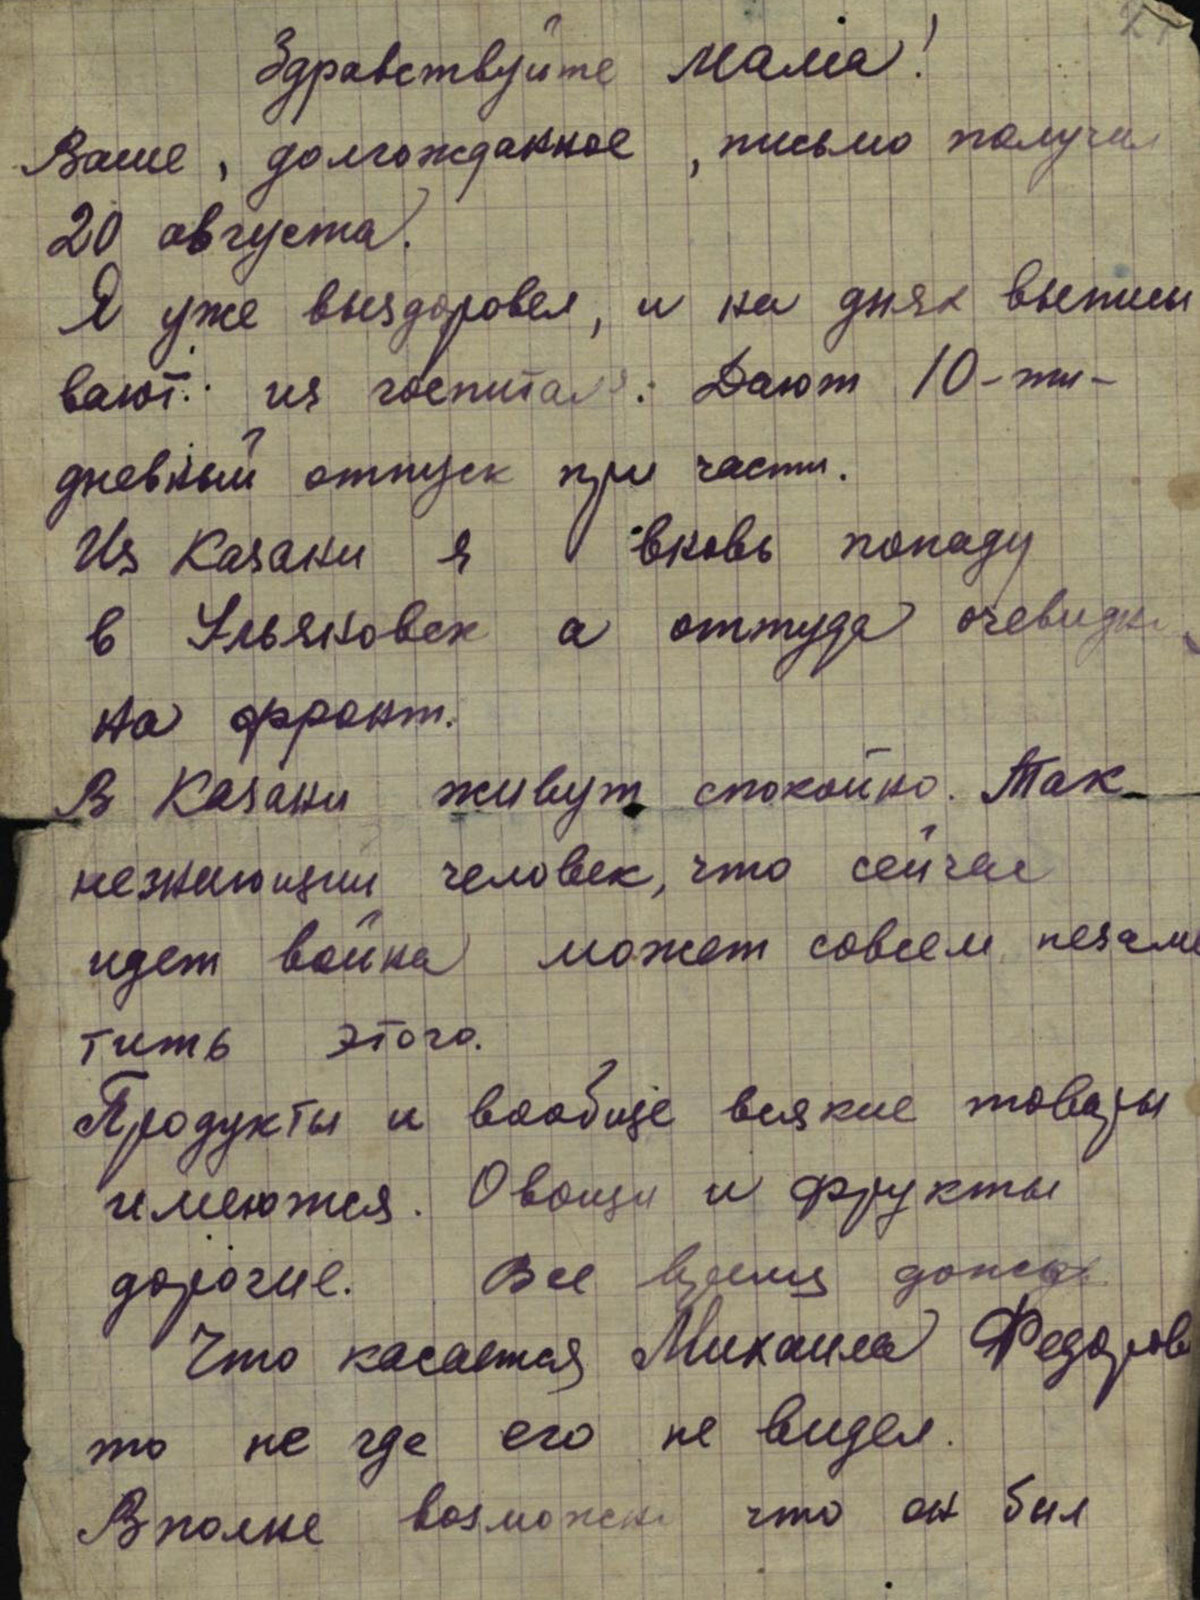 Здравствуйте Мама!
Ваше, долгожданное, письмо получил
20 августа.
Я уже выздоровел, и на днях выписы
вают из госпиталя. Дают 10-ти-
дневный отпуск при части.
Из Казани я вновь попаду
в Ульяновск а оттуда очевидно
на фронт.
В Казани живут спокойно. Так
незнающий человек, что сейчас
идет война может совсем незаме
тить этого.
Продукты и вообще всякие товары
имеются. Овощи и фрукты
дорогие. Все время дожди.
Что касается Михаила Федоров
то не где его не видел.
Вполне возможно что он был